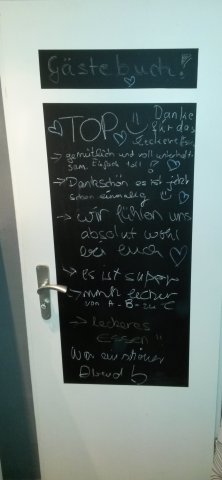 Gästebuch!
TOP
Danke
für das
leckere Essen
→ gemütlich und voll unterhalt-
sam. Einfach toll!
→ Dankschön es ist jetzt
schon einmalig
→ wir fühlen uns
absolut wohl
bei euch
→ es ist super
→ mmh lecker
von A - B - zu C
→ leckeres
Essen!!
War ein schöner
Abend